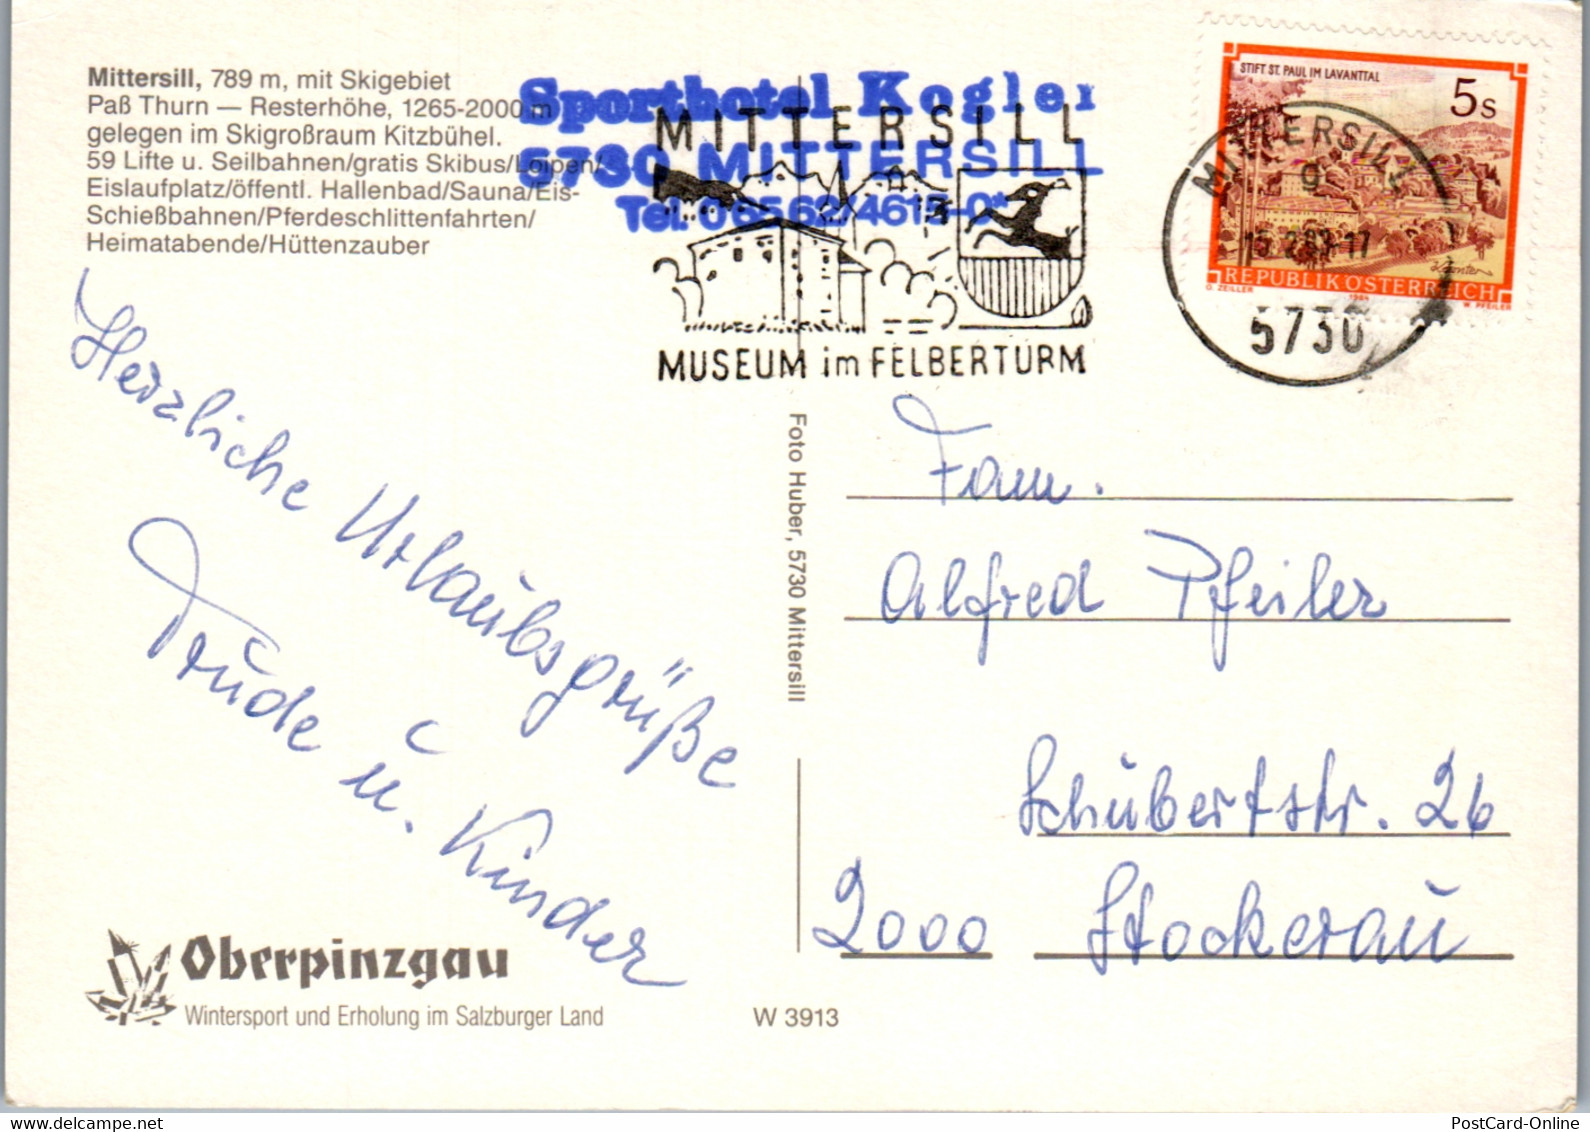 Mittersill, 789 m, mit Skigebiet
Paß Thurn — Resterhöhe, 1265-2000 m
gelegen im Skigroßraum Kitzbühel.
59 Lifte u. Seilbahnen/gratis Skibus/Loipen/
Eislaufplatz/öffentl. Hallenbad/Sauna/Eis-
Schießbahnen/Pferdeschlittenfahrten/
Heimatabende/Hüttenzauber
Sporthotel Kogler
5730 MITTERSILL
Tel. 06562/4615-0*
MITTERSILL
MUSEUM im FELBERTURM
STIFT ST. PAUL IM LAVANTTAL
5 S
REPUBLIK ÖSTERREICH
O. ZEILLER 1984 W. PFEILER
MITTERSILL
g
5730
Herzliche Urlaubsgrüße
Trude u. Kinder
Foto Huber, 5730 Mittersill
Fam.
Alfred Pfeiler
Schubertstr. 26
2000 Stockerau
Oberpinzgau
Wintersport und Erholung im Salzburger Land
W 3913
PostCard-Online